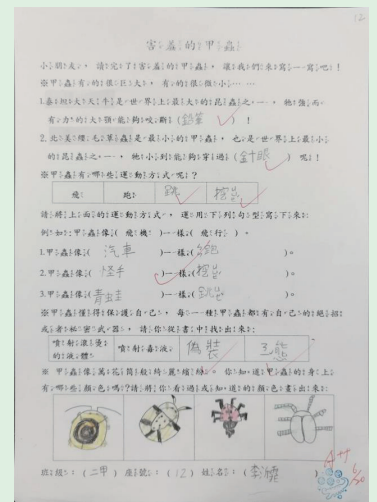 12
害羞的甲蟲
小朋友,請完了害羞的甲蟲,讓我們來寫一寫吧!
※甲蟲有的很巨大,有的很微小……
1.泰坦大天牛是世界上最大的昆蟲之一,牠強而
有力的大顎能夠咬斷(鉛筆)!
2.北美纓毛蕈蟲是最小的甲蟲,也是世界上最小
的昆蟲之一,牠小到能夠穿過(針眼)呢!
※甲蟲有哪些運動方式呢?
飛 跑 跳 挖掘
請將上面的運動方式,運用下列句型寫下來:
例如:甲蟲像(飛機)一樣(飛行)。
1.甲蟲像(汽車)一樣(跑)。
2.甲蟲像(怪手)一樣(挖掘)。
3.甲蟲像(青蛙)一樣(跳躍)。
※甲蟲懂得保護自己,每一種甲蟲都有自己的絕招
或者秘密武器,請你從書中找出來:
噴射滾燙的液體 噴射毒液 偽裝
※甲蟲像萬花筒般綺麗繽紛。你知道甲蟲的身上
有哪些顏色嗎?請將你看過或知道的顏色畫出來:
班級:(二甲) 座號:(12) 姓名:(李)
A++